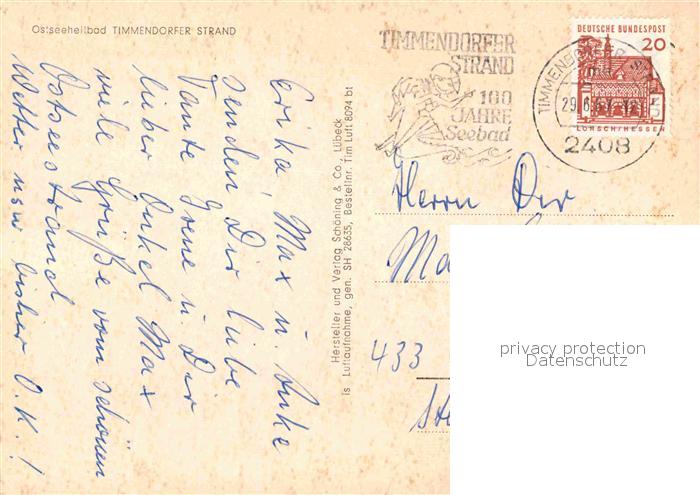 Ostseeheilbad TIMMENDORFER STRAND
TIMMENDORFER
STRAND
100
JAHRE
Seebad
DEUTSCHE BUNDESPOST
20
LORSCH/HESSEN
TIMMENDORFER STRAND
29.6.67
2408
Erika, Max u. Anke
senden Dir liebe
Tante Irene u. Dir
lieber Onkel Max
viele Grüße vom schönen
Ostseestrand
Wetter usw bisher O.K.!
Hersteller und Verlag Schöning & Co., Lübeck
is Luftaufnahme, gen. SH 28635, Bestellnr. Tim Luft 8094 bt
Herrn Dir
Ma
433
privacy protection
Datenschutz